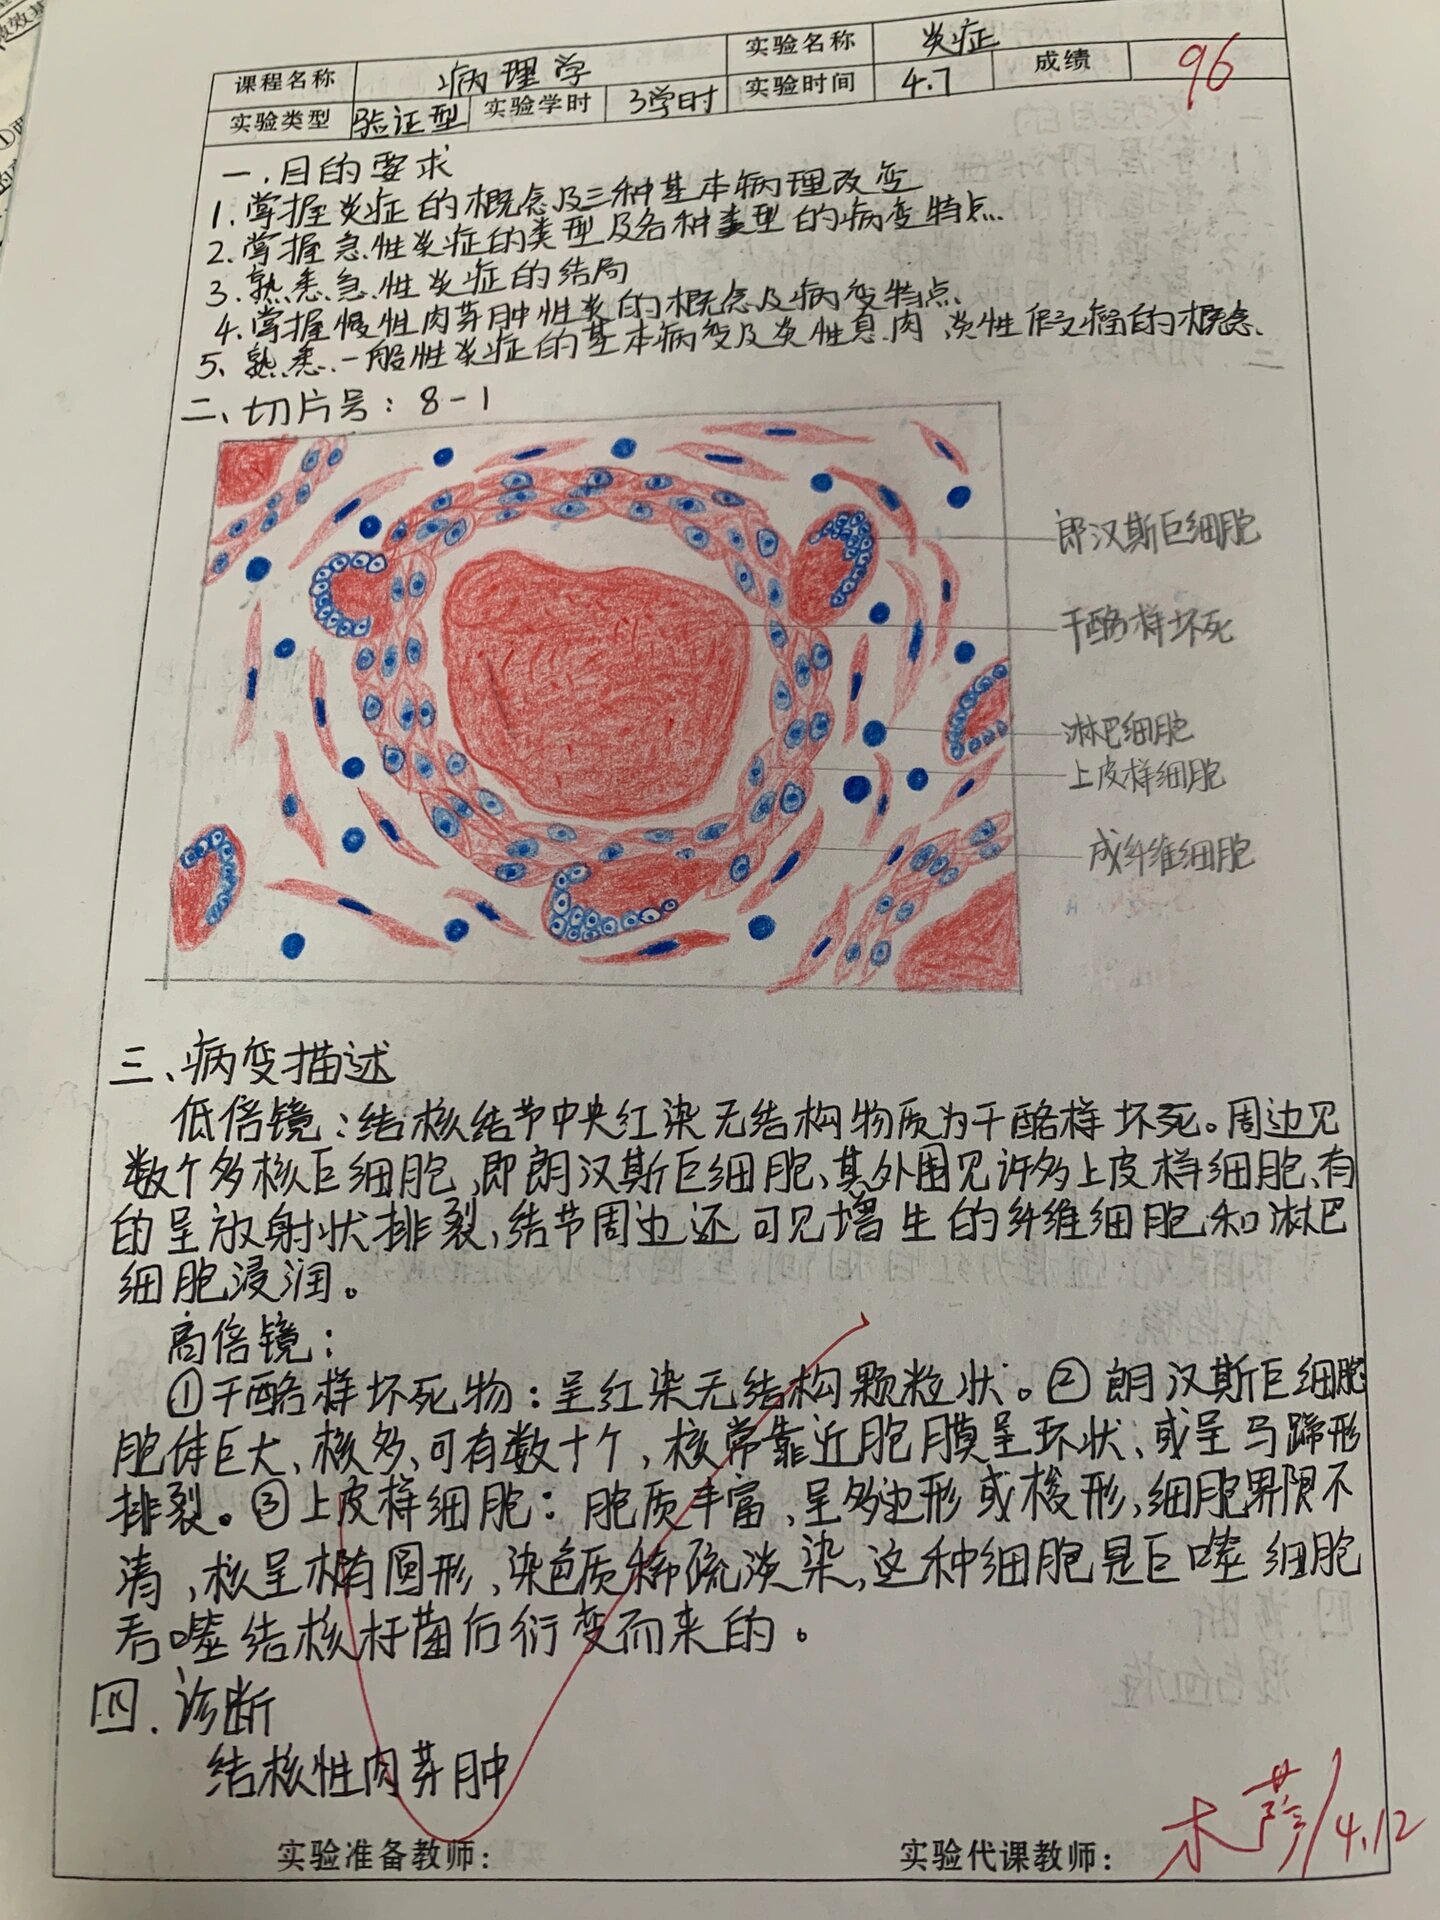 课程名称 病理学 实验名称 炎症
实验类型 验证型 实验学时 3学时 实验时间 4.7 成绩 96
一.目的要求
1.掌握炎症的概念及三种基本病理改变
2.掌握急性炎症的类型及各种类型的病变特点.
3.熟悉急性炎症的结局
4.掌握慢性肉芽肿性炎的概念及病变特点、
5、熟悉一般性炎症的基本病变及炎性息肉、炎性假瘤的概念、
二、切片号：8-1
郎汉斯巨细胞
干酪样坏死
淋巴细胞
上皮样细胞
成纤维细胞
三、病变描述
低倍镜：结核结节中央红染无结构物质为干酪样坏死。周边见
数个多核巨细胞,即朗汉斯巨细胞、其外围见许多上皮样细胞、有
的呈放射状排裂,结节周边还可见增生的纤维细胞和淋巴
细胞浸润。
高倍镜：
①干酪样坏死物：呈红染无结构颗粒状。②朗汉斯巨细胞
胞体巨大、核多、可有数十个,核常靠近胞膜呈环状、或呈马蹄形
排裂。③上皮样细胞：胞质丰富,呈多边形或梭形,细胞界限不
清,核呈椭圆形,染色质稀疏淡染,这种细胞是巨噬细胞
吞噬结核杆菌后衍变而来的。
四.诊断
结核性肉芽肿
实验准备教师： 实验代课教师： 4.12